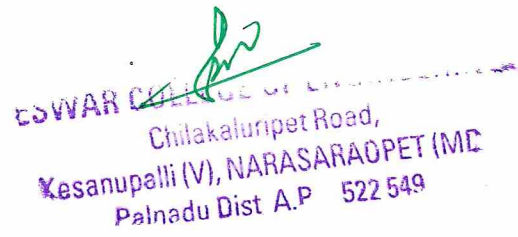 ESWAR COLLEGE OF
Chilakaluripet Road,
Kesanupalli (V), NARASARAOPET (MD
Palnadu Dist A.P 522 549